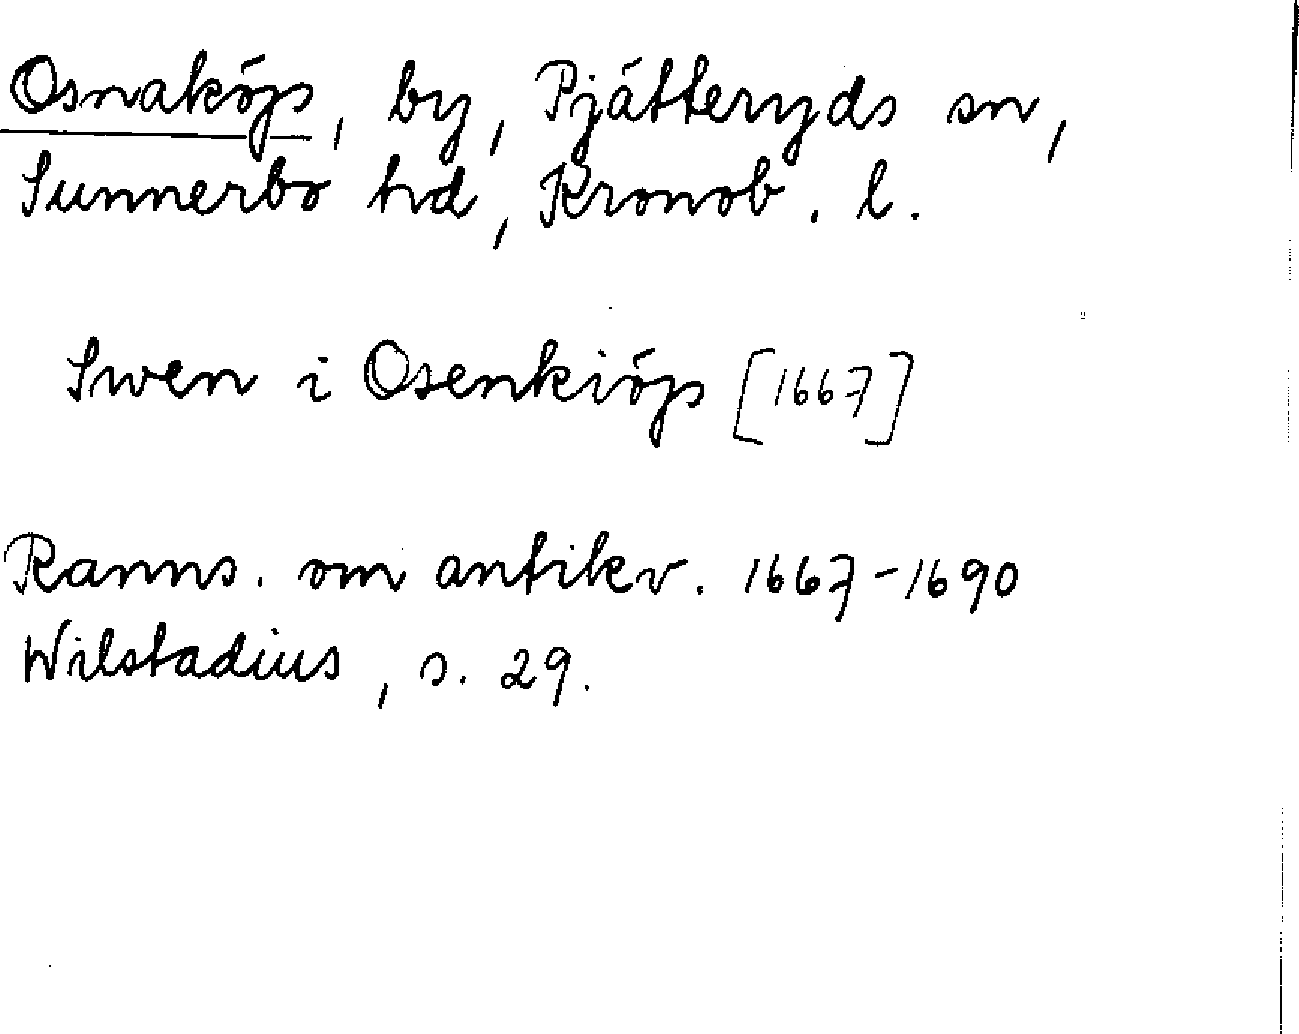 Osnaköp, by, Pjätteryds sn,
Sunnerbo hd, Kronob. l.
Swen i Osenkiöp [1667]
Ranns. om antikv. 1667-1690
Wilstadius, s. 29.